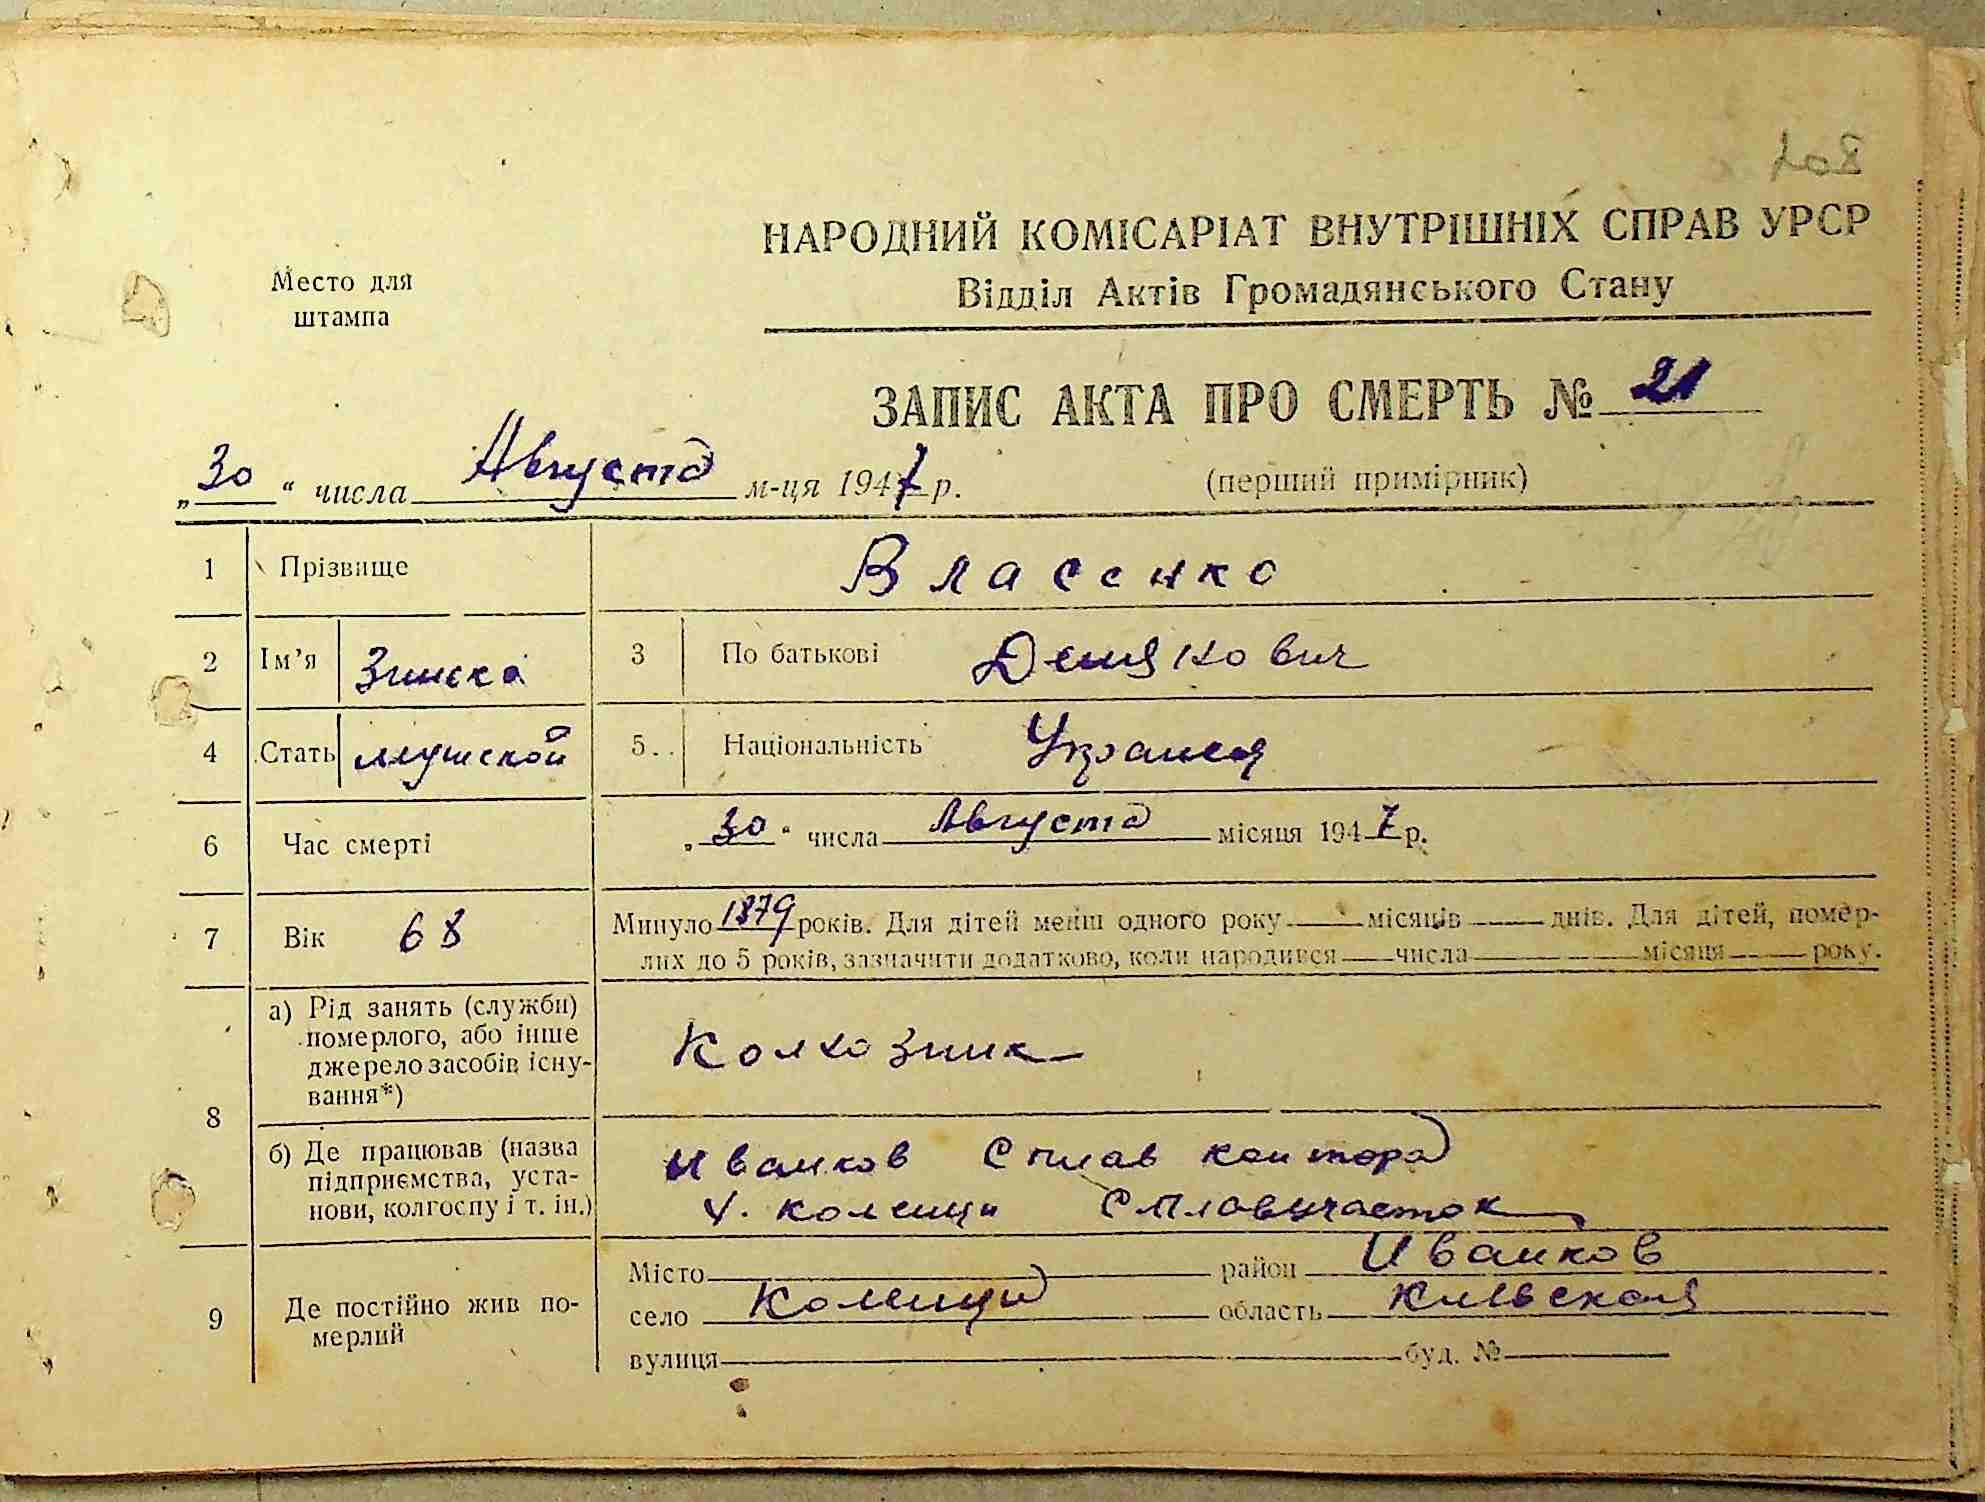 208
НАРОДНИЙ КОМІСАРІАТ ВНУТРІШНІХ СПРАВ УРСР
Відділ Актів Громадянського Стану
Место для
штампа
ЗАПИС АКТА ПРО СМЕРТЬ № 21
„30“ числа Августа м-ця 1947 р. (перший примірник)
1 Прізвище Власенко
2 Ім’я 3 По батькові
4 Стать мужской 5. Національність
6 Час смерті „30“ числа Августа місяця 1947 р.
7 Вік 68 Минуло 1879 років. Для дітей менш одного року місяців днів. Для дітей, помер-
лих до 5 років, зазначити додатково, коли народився числа місяця року.
8 а) Рід занять (служби)
померлого, або інше
джерело засобів існу-
вання*)
Колхозник
б) Де працював (назва
підприємства, уста-
нови, колгоспу і т. ін.)
Иванков Сплав контора
Коленци Сплавучасток
9 Де постійно жив по-
мерлий
Місто район Иванков
село Коленци область Киевская
вулиця буд. №